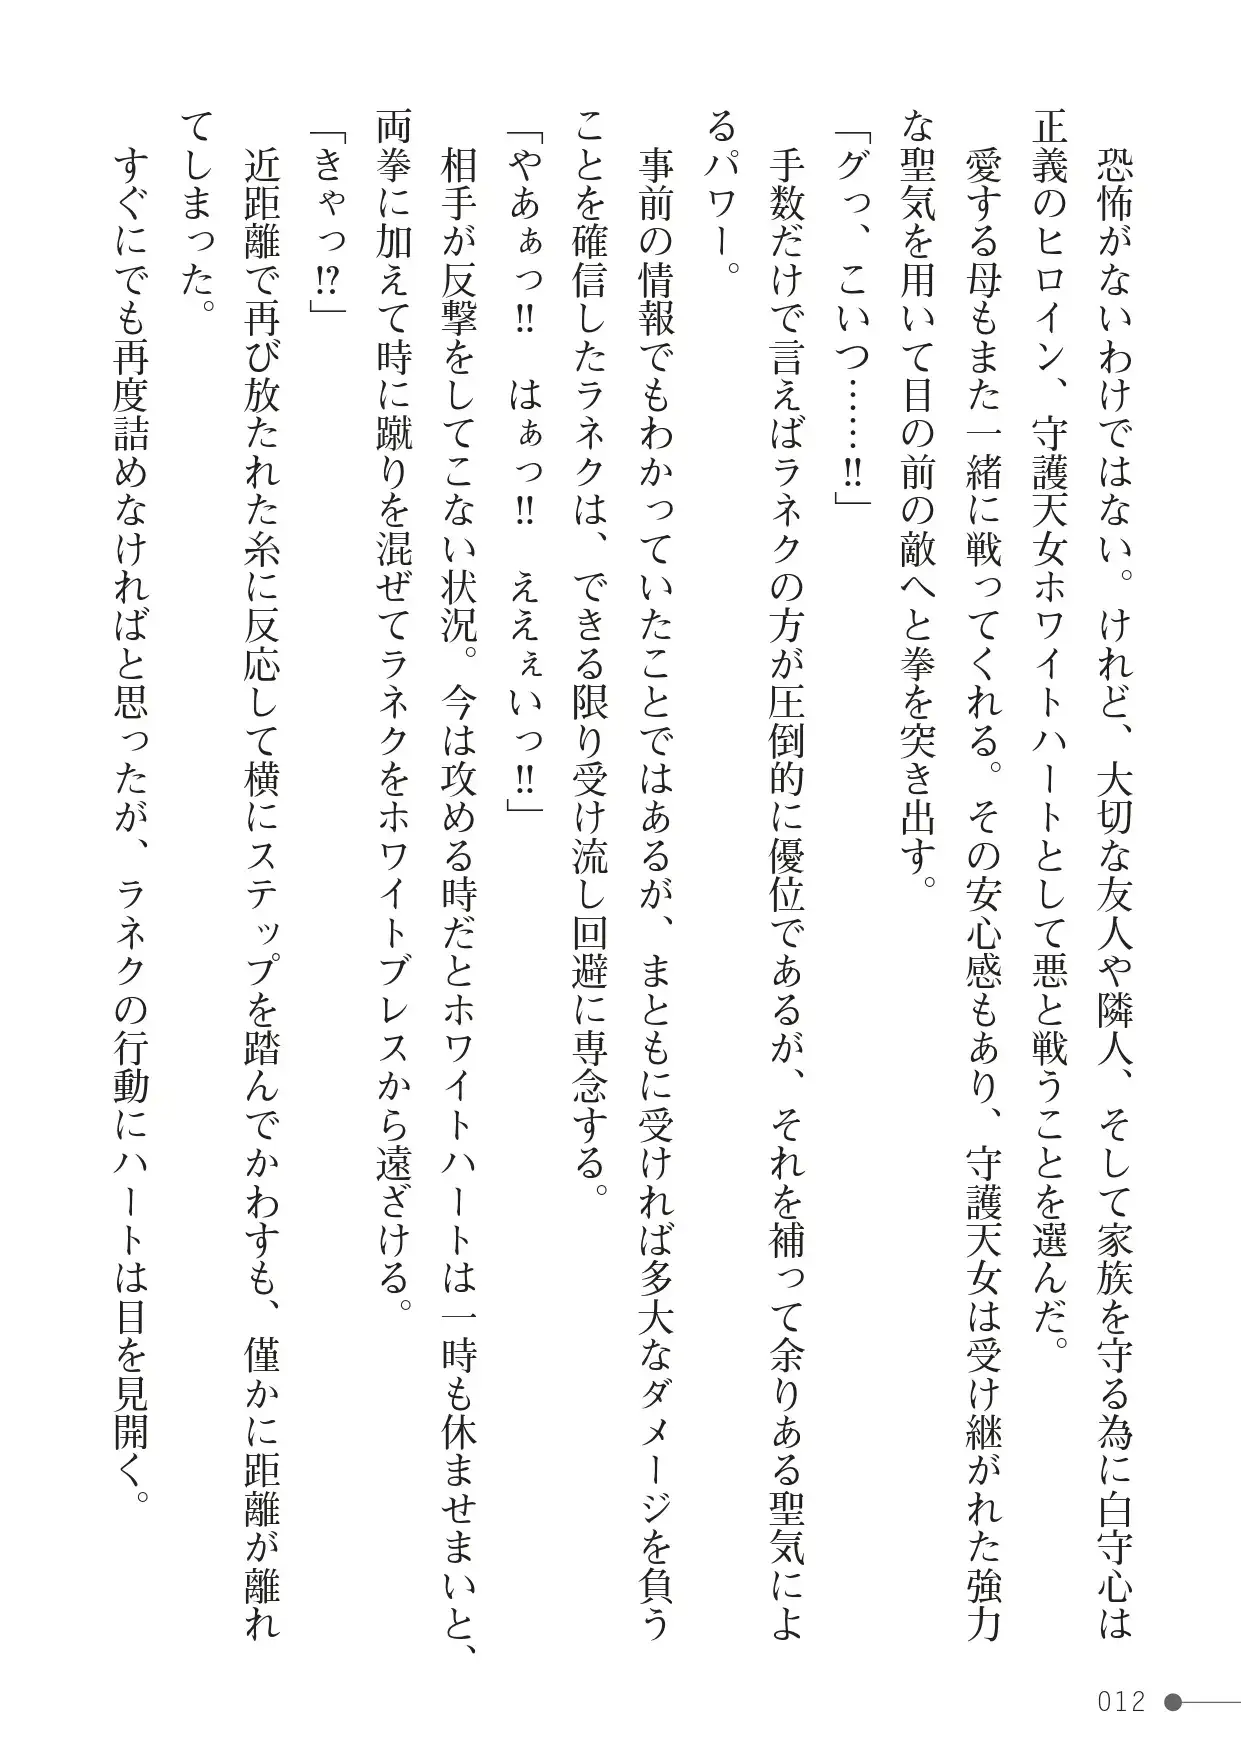 恐怖がないわけではない。けれど、大切な友人や隣人、そして家族を守る為に白守心は
正義のヒロイン、守護天女ホワイトハートとして悪と戦うことを選んだ。
　愛する母もまた一緒に戦ってくれる。その安心感もあり、守護天女は受け継がれた強力
な聖気を用いて目の前の敵へと拳を突き出す。
「グっ、こいつ……‼」
　手数だけで言えばラネクの方が圧倒的に優位であるが、それを補って余りある聖気によ
るパワー。
　事前の情報でもわかっていたことではあるが、まともに受ければ多大なダメージを負う
ことを確信したラネクは、できる限り受け流し回避に専念する。
「やあぁっ‼　はぁっ‼　ええぇいっ‼」
　相手が反撃をしてこない状況。今は攻める時だとホワイトハートは一時も休ませまいと、
両拳に加えて時に蹴りを混ぜてラネクをホワイトブレスから遠ざける。
「きゃっ⁉」
　近距離で再び放たれた糸に反応して横にステップを踏んでかわすも、僅かに距離が離れ
てしまった。
　すぐにでも再度詰めなければと思ったが、ラネクの行動にハートは目を見開く。
012